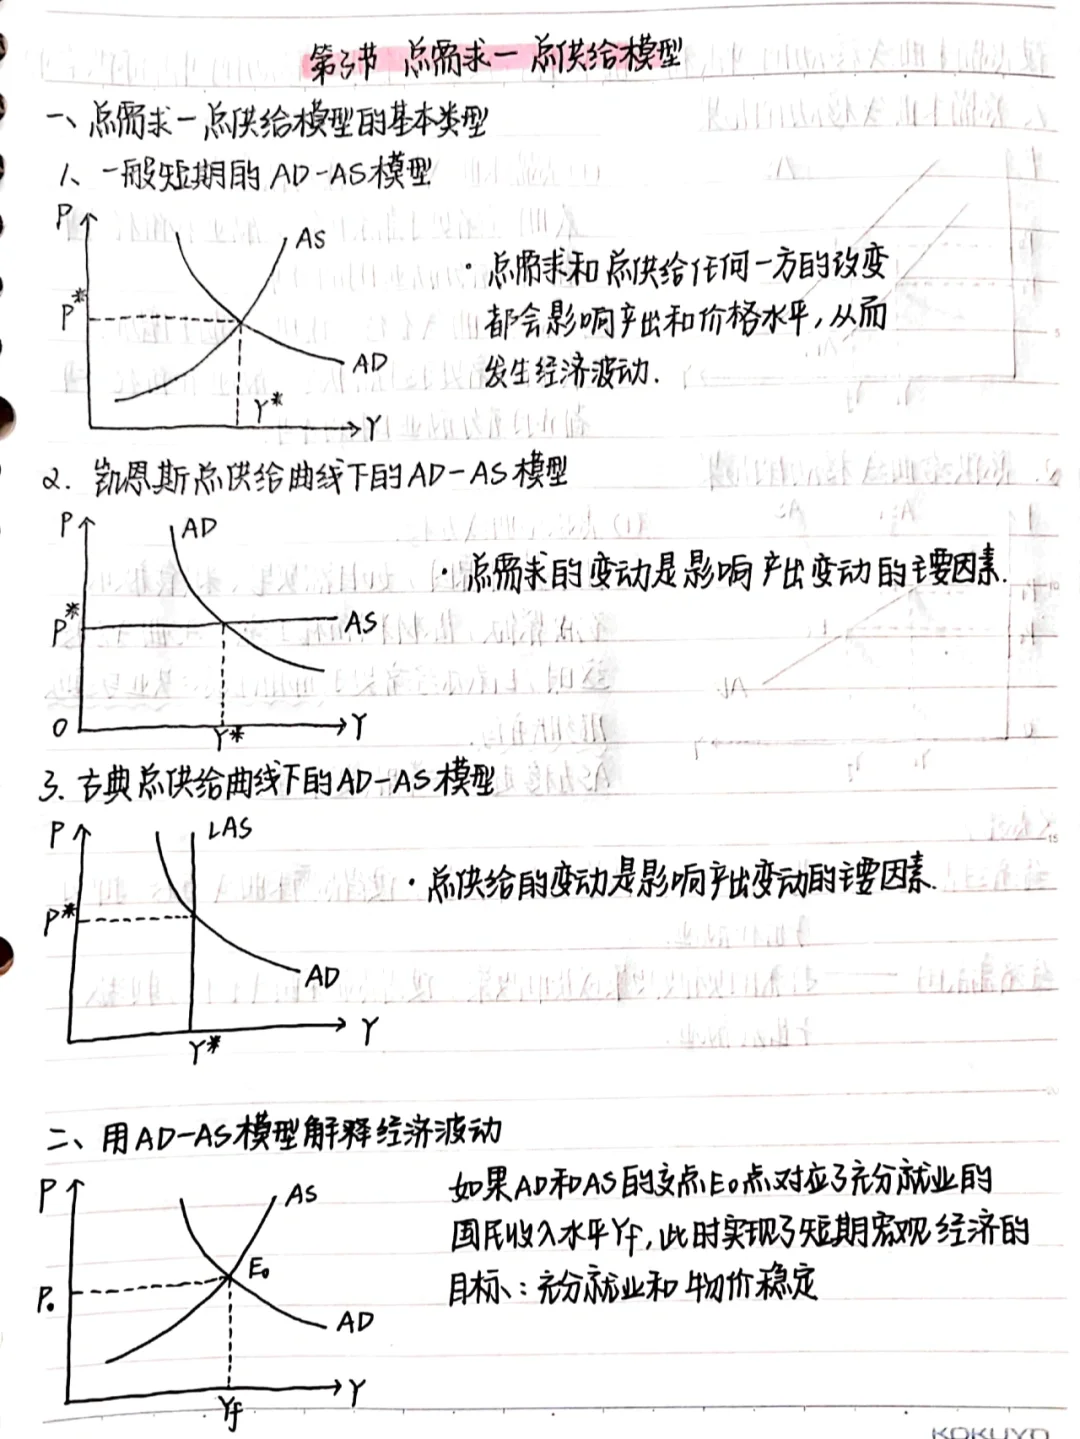 第3节 总需求一总供给模型
一、总需求一总供给模型的基本类型
1、一般短期的AD-AS模型
P
AS
·总需求和总供给任何一方的改变
P*
都会影响产出和价格水平,从而
AD
发生经济波动.
Y*
Y
2. 凯恩斯总供给曲线下的AD-AS模型
P
AD
·总需求的变动是影响产出变动的主要因素.
P*
AS
O
Y*
Y
3. 古典总供给曲线下的AD-AS模型
P
LAS
·总供给的变动是影响产出变动的主要因素.
P*
AD
Y*
Y
二、用AD-AS模型解释经济波动
P
AS
如果AD和AS的交点E₀点对应了充分就业的
国民收入水平Yf,此时实现了短期宏观经济的
E₀
目标:充分就业和物价稳定
P₀
AD
Y
Yf
KOKUYO